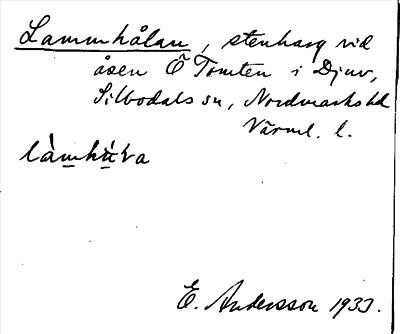 Lammhålan, stenharg vid
åsen Ö Tomten i Djuv,
Silbodals sn, Nordmarks hd
Värml. l.
E. Andersson 1933.